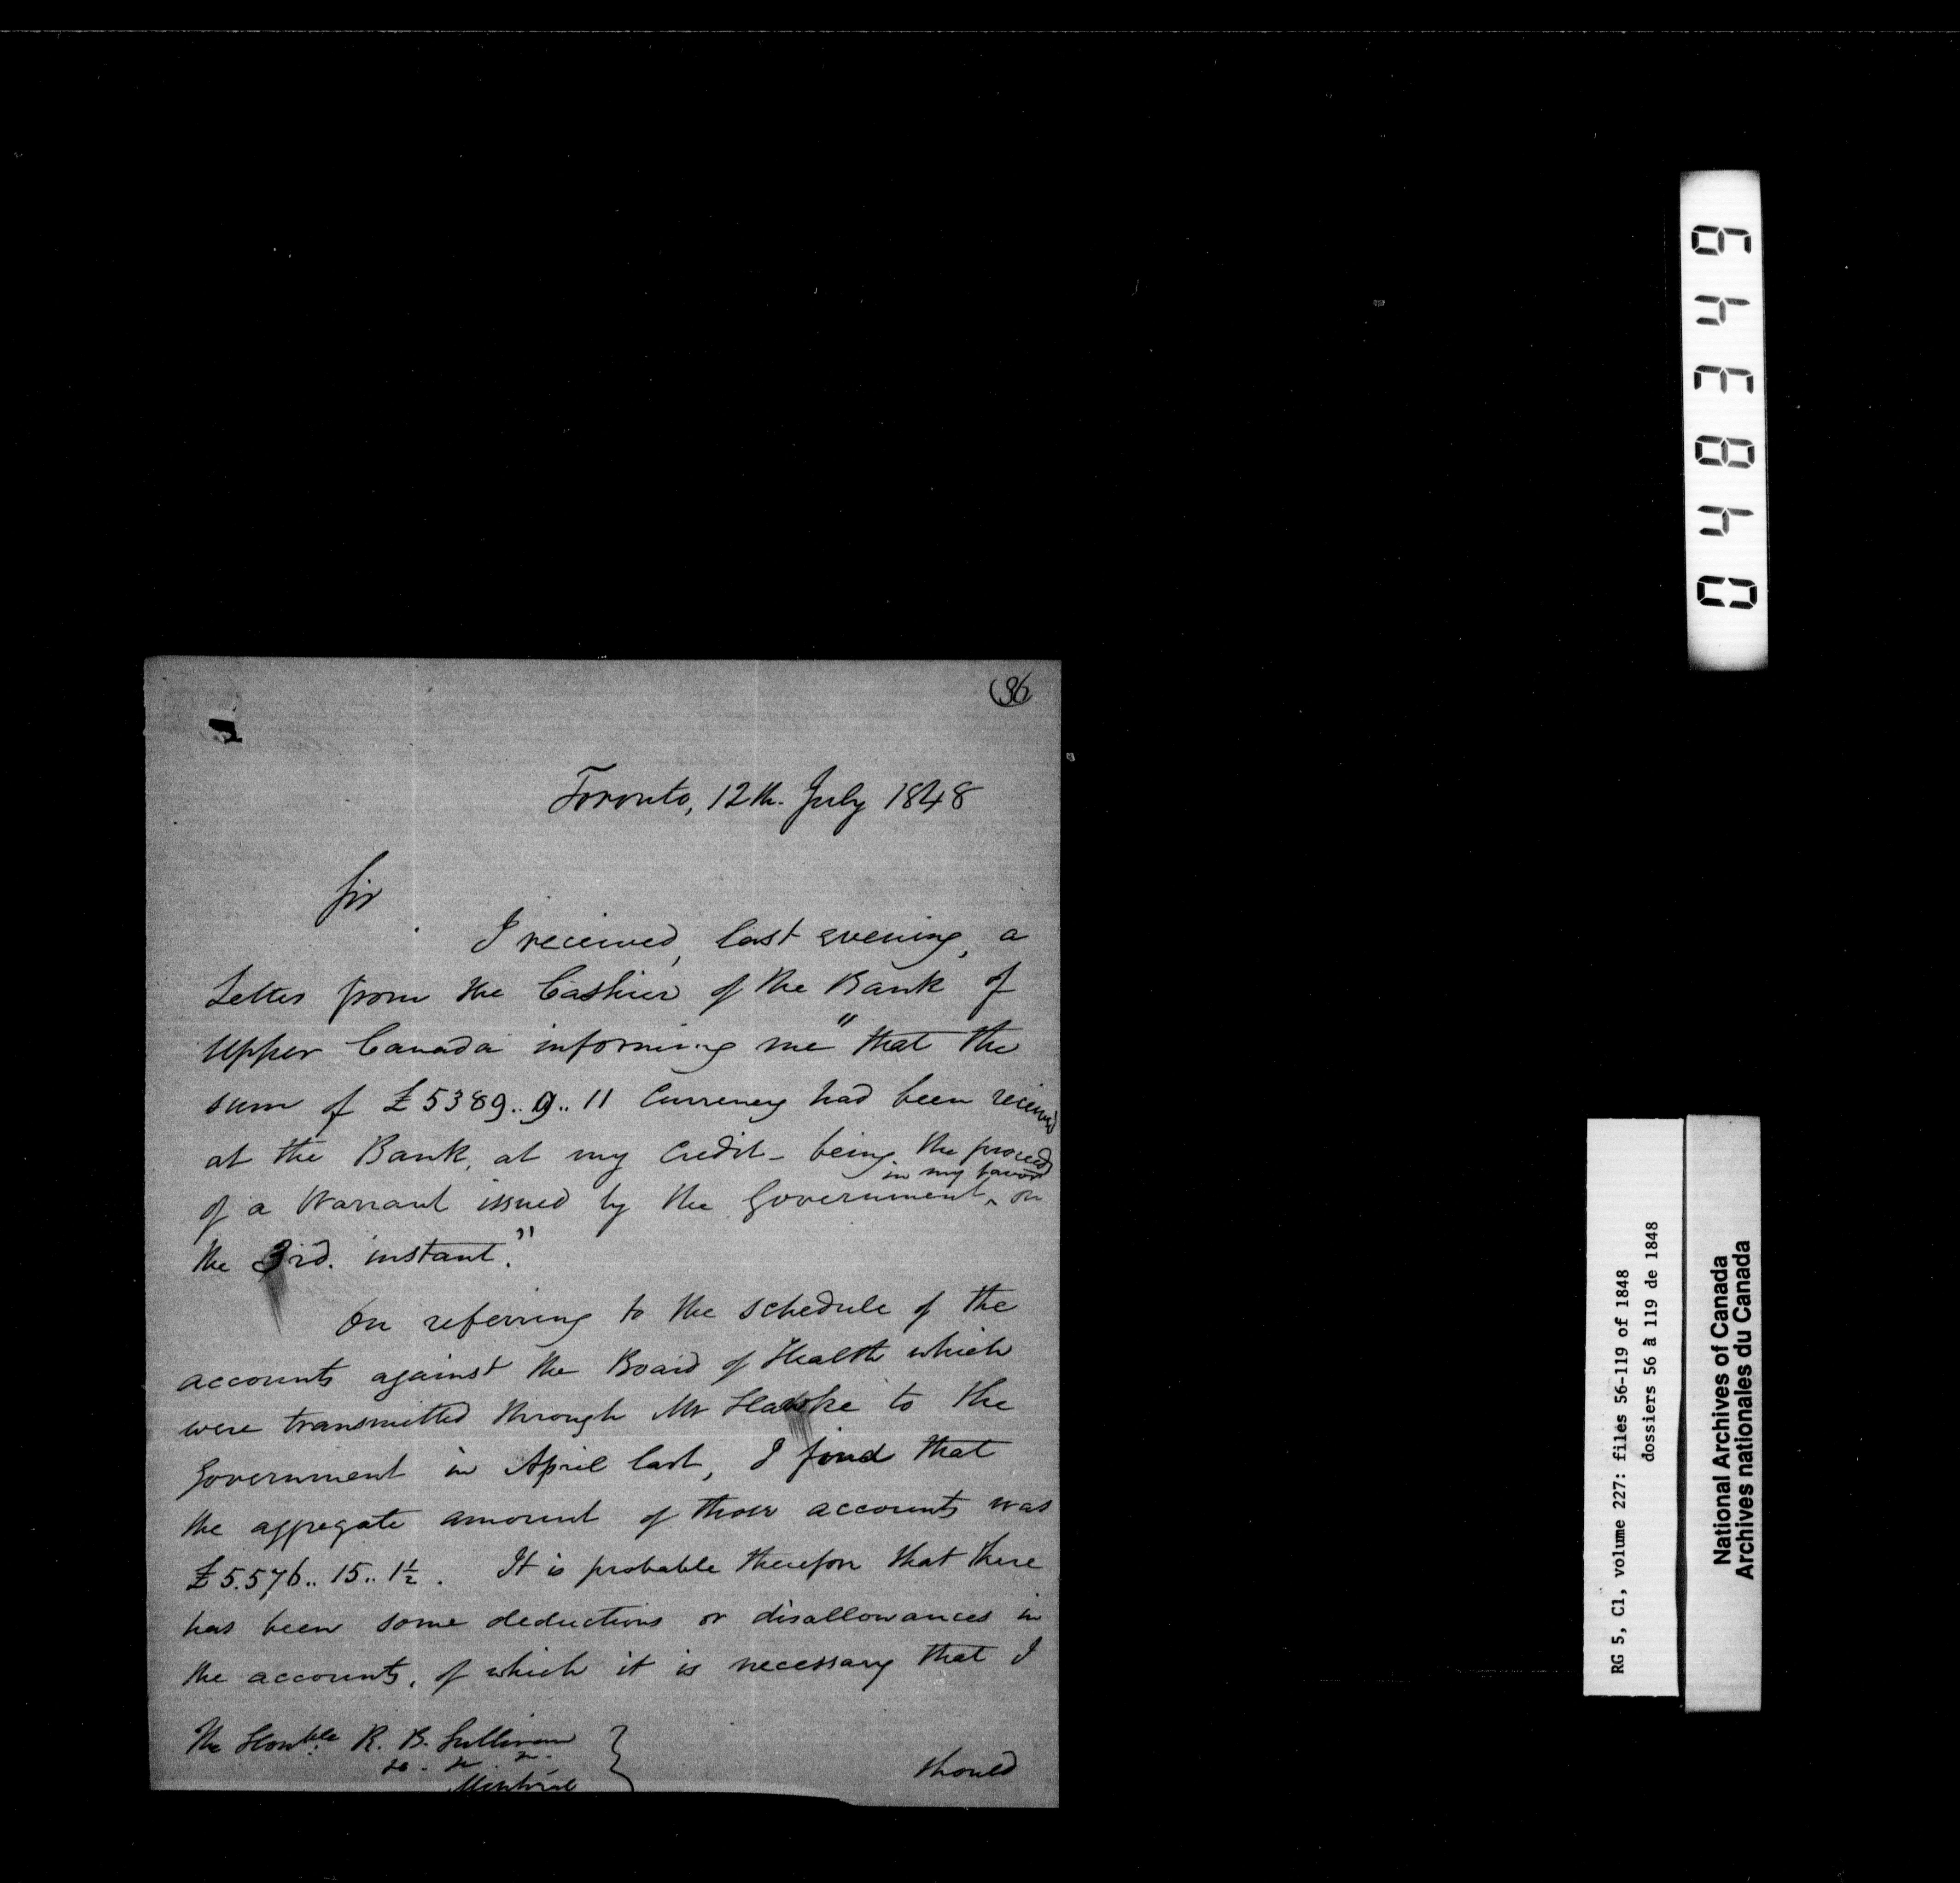 36
Toronto, 12th. July 1848
Sir
I received, last evening, a
Letter from the Cashier of the Bank of
Upper Canada informing me "that the
sum of £5389..9..11 Currency had been received
at the Bank, at my Credit - being the proceeds
in my favor
of a Warrant issued by the Government ^ on
the 3rd. instant."
On referring to the schedule of the
accounts against the Board of Health which
were transmitted through Mr Hawke to the
Government in April last, I find that
the aggregate amount of those accounts was
£5.576..15..1½. It is probable therefore that there
has been some deductions or disallowances in
the accounts, of which it is necessary that I
The Honble. R. B. Sullivan
&c. &c. &c.
Montreal
should
048349
RG 5, C1, volume 227: files 56-119 of 1848
dossiers 56 à 119 de 1848
National Archives of Canada
Archives nationales du Canada